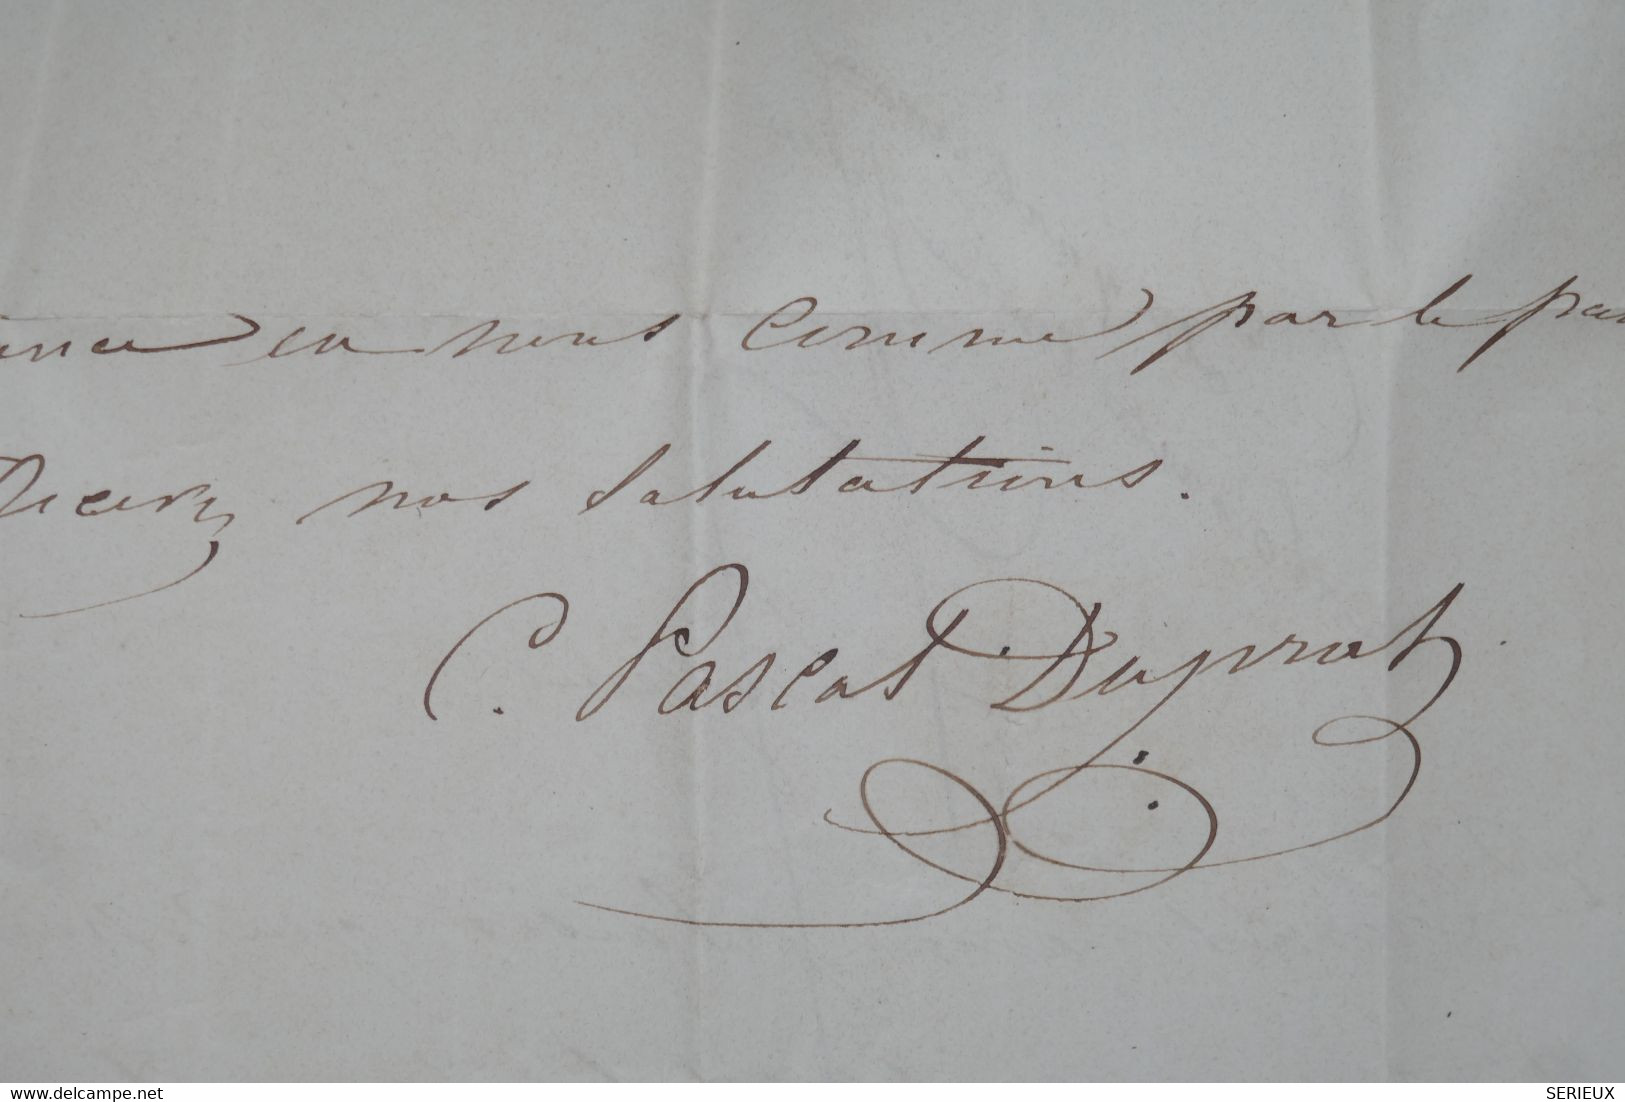 en nous comme par le
nos salutations.
C. Pascal Duprat
www.delcampe.net
SERIEUX